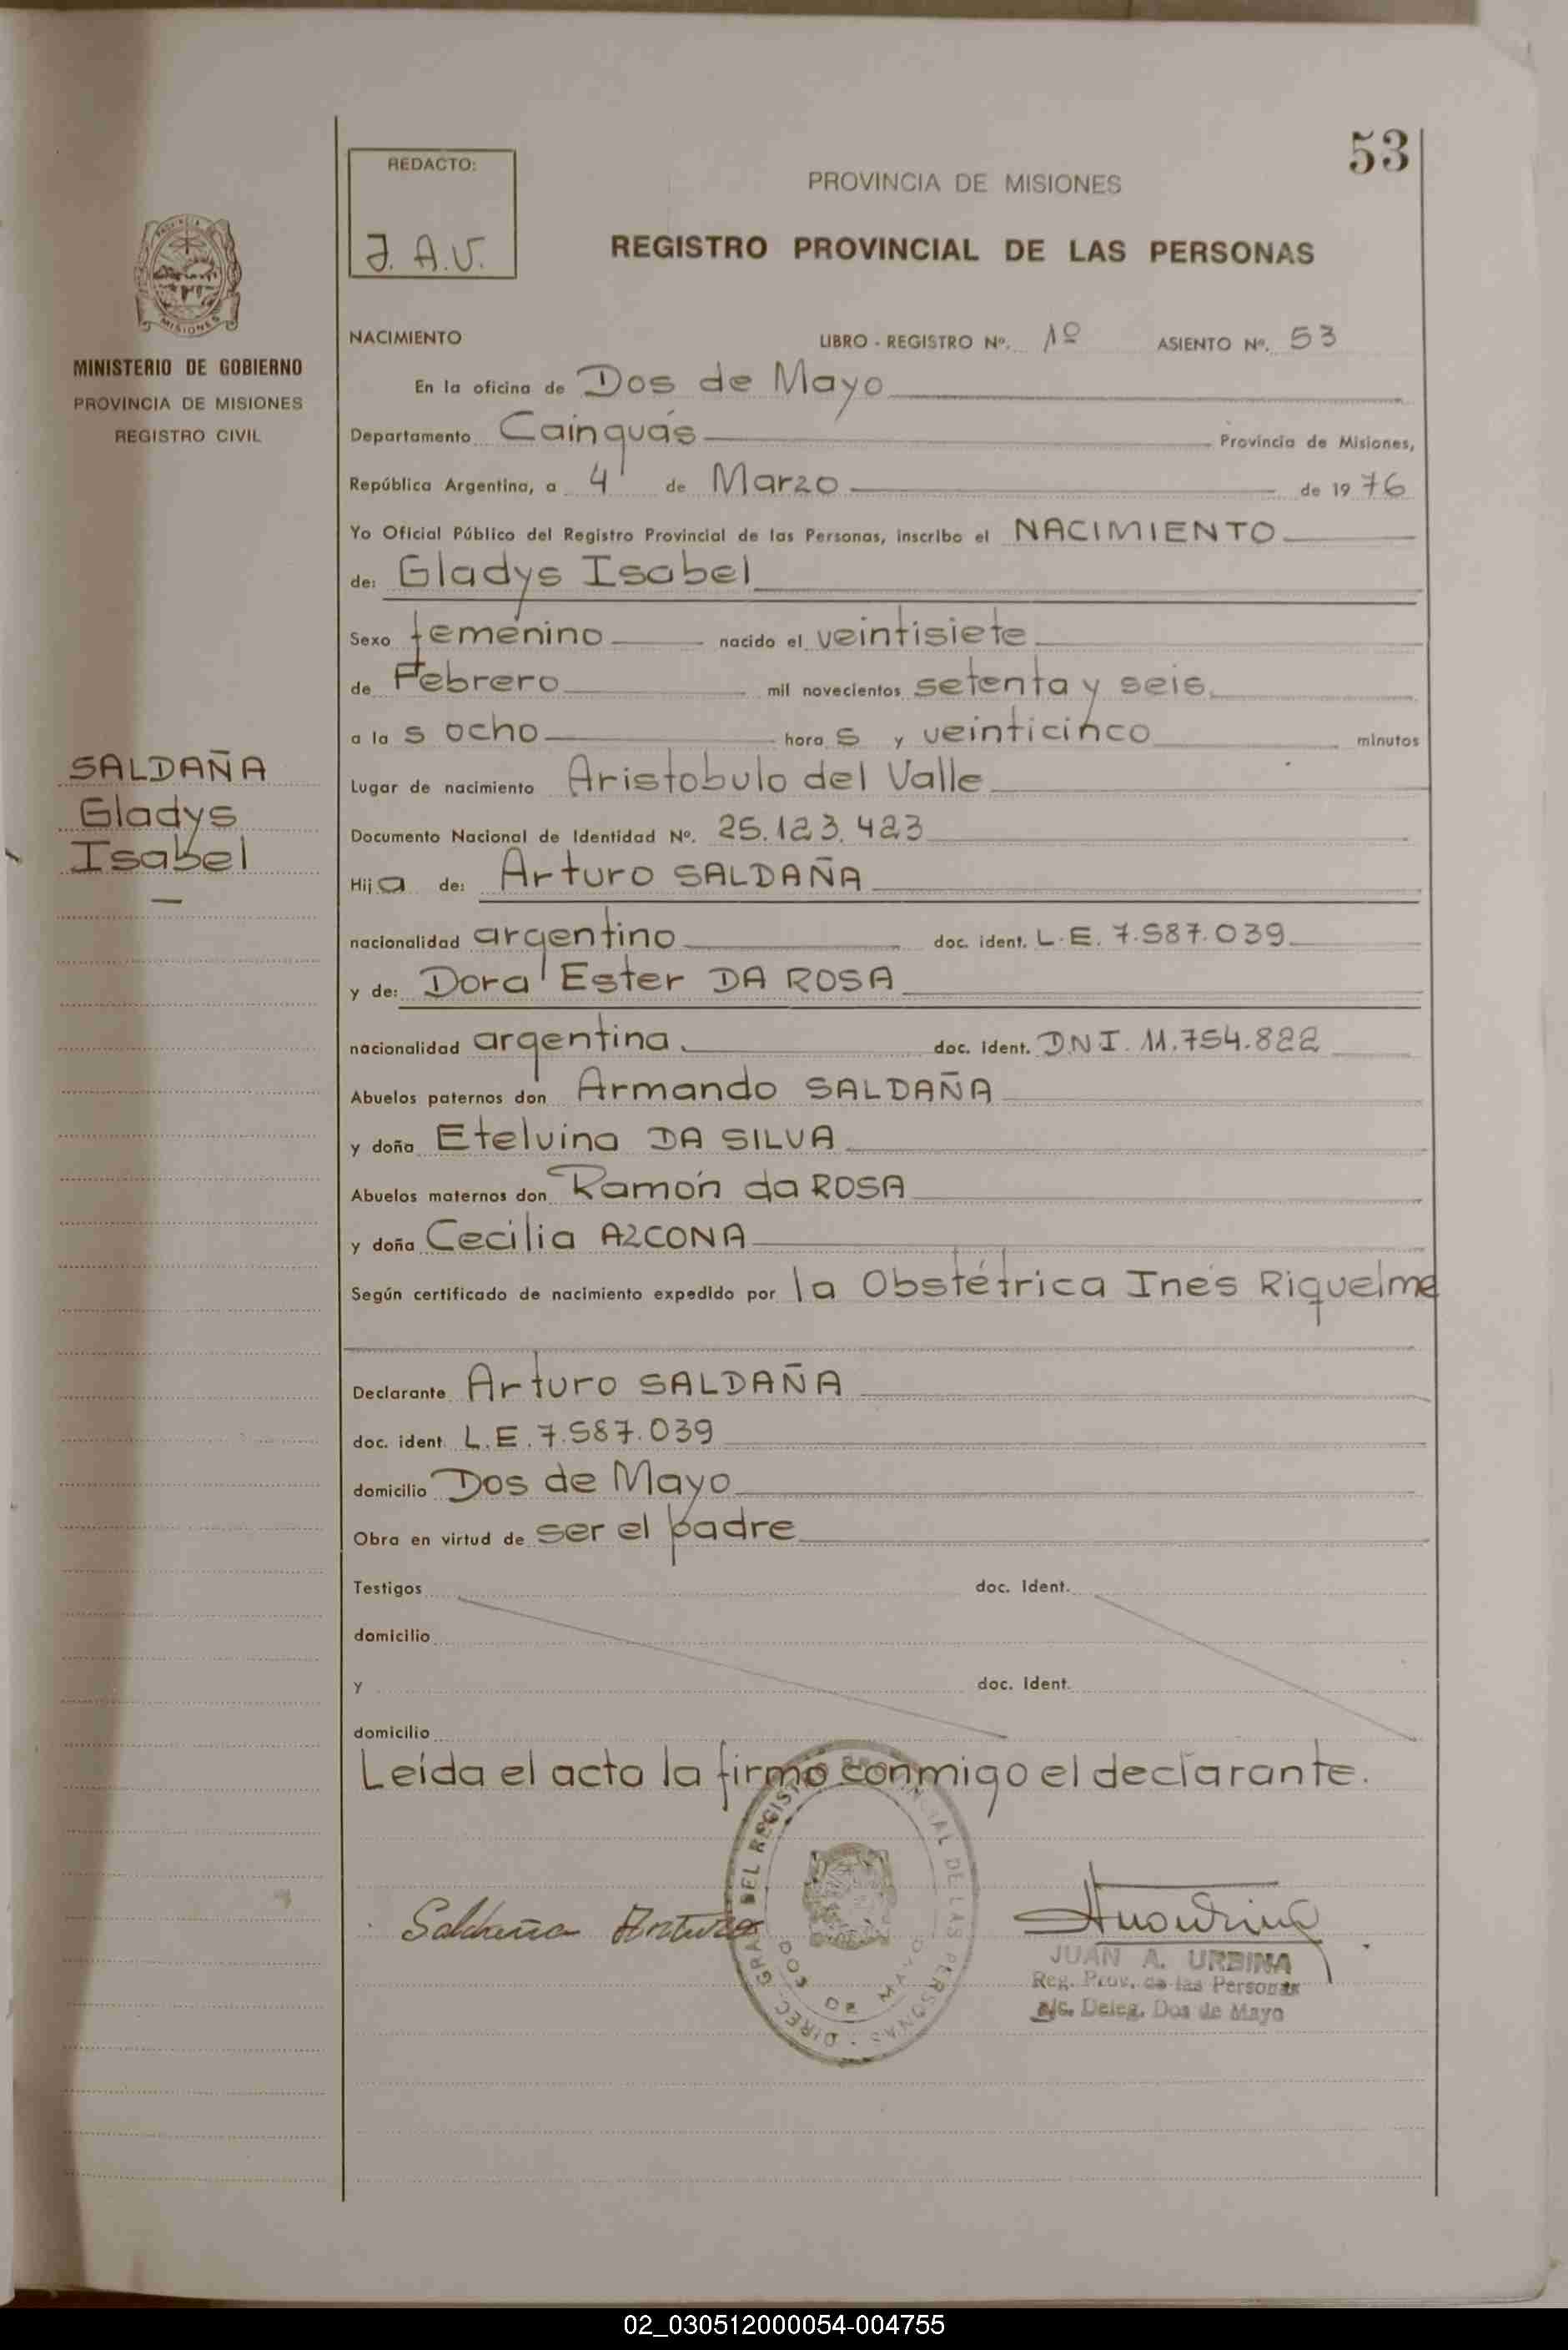 53
REDACTO:
J. A. U.
PROVINCIA DE MISIONES
REGISTRO PROVINCIAL DE LAS PERSONAS
MISIONES
MINISTERIO DE GOBIERNO
PROVINCIA DE MISIONES
REGISTRO CIVIL
SALDAÑA
Gladys
Isabel
NACIMIENTO LIBRO - REGISTRO Nº. 1º ASIENTO Nº. 53
En la oficina de Dos de Mayo
Departamento Cainguás Provincia de Misiones,
República Argentina, a 4 de Marzo de 1976
Yo Oficial Público del Registro Provincial de las Personas, inscribo el NACIMIENTO
de: Gladys Isabel
Sexo femenino nacido el veintisiete
de Febrero mil novecientos setenta y seis
a la s ocho hora s y veinticinco minutos
Lugar de nacimiento Aristobulo del Valle
Documento Nacional de Identidad Nº. 25.123.423
Hija de: Arturo SALDAÑA
nacionalidad argentino doc. ident. L.E. 7.587.039
y de: Dora Ester DA ROSA
nacionalidad argentina doc. ident. D.N.I. 11.754.822
Abuelos paternos don Armando SALDAÑA
y doña Etelvina DA SILVA
Abuelos maternos don Ramón da ROSA
y doña Cecilia AZCONA
Según certificado de nacimiento expedido por la Obstétrica Inés Riquelme
Declarante Arturo SALDAÑA
doc. ident. L.E. 7.587.039
domicilio Dos de Mayo
Obra en virtud de ser el padre
Testigos doc. ident.
domicilio
y doc. ident.
domicilio
Leída el acta la firma conmigo el declarante.
Saldaña Arturo
DIREC. GRAL DEL REGISTRO PROVINCIAL DE LAS PERSONAS
DOS DE MAYO
JUAN A. URBINA
Reg. Prov. de las Personas
a/c. Deleg. Dos de Mayo
02_030512000054-004755